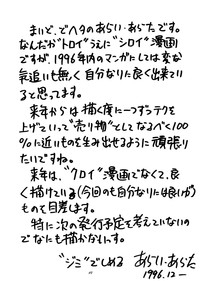 まいど、でヘタのあらい・あらた です。
なんだか"トロイ"うえに"シロイ"漫画
ですが、1996年内のマンガにしては変な
気追いも無く自分なりに良く出来てい
ると思ってます。
来年からは描く度に一つずつテクを
上げていって"売り物"としてなるべく100
%に近いものを生み出せるように頑張り
たいですね。
来年は、"クロイ"漫画でなくて、良
く描けている(今回のも自分なりには良いが)
ものを目差します。
特に次の発行予定を考えていないの
でなにも描かない。
"ジミ"でしめる あらい・あらた
1996.12